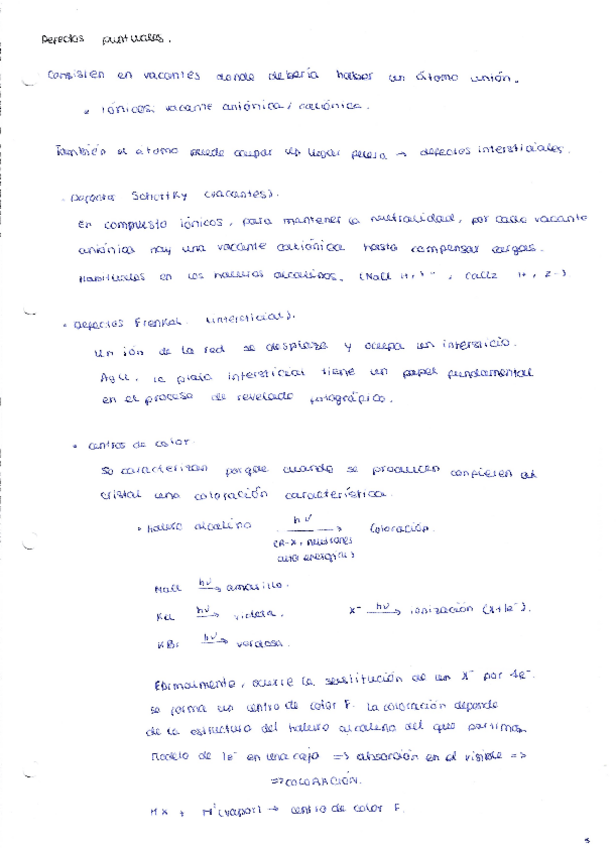 Defectos puntuales.
Consisten en vacantes donde debería haber un átomo unión.
• iónicos: vacante aniónica / catiónica.
También el átomo puede ocupar un lugar → defectos intersticiales.
· Defectos Schottky (vacantes).
En compuesto iónicos, para mantener la neutralidad, por cada vacante
aniónica hay una vacante catiónica hasta compensar cargas.
Habituales en los haluros alcalinos. (NaCl 1+, 1-, CaCl2 1+, 2-)
• Defectos Frenkel (intersticial).
Un ión de la red se desplaza y ocupa un intersticio.
AgCl, la plata intersticial tiene un papel fundamental
en el proceso de revelado fotográfico.
• centros de color.
Se caracterizan porque cuando se producen confieren al
cristal una coloración característica.
• haluro alcalino hν → coloración.
(R-X, neutrones
alta energía)
NaCl hν → amarillo.
KCl hν → violeta. X⁻ hν → ionización (X+1e⁻).
KBr hν → verdosa.
Formalmente, ocurre la sustitución de un X⁻ por 1e⁻.
se forma un centro de color F. La coloración depende
de la estructura del haluro alcalino del que partimos.
Modelo de 1e⁻ en una caja => absorción en el visible =>
=> COLORACIÓN.
MX + M(vapor) → centro de color F.
5